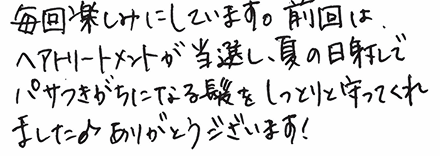 毎回楽しみにしています。前回は、
ヘアトリートメントが当選し、夏の日射しで
パサつきがちになる髪をしっとりと守ってくれ
ました♪ありがとうございます!